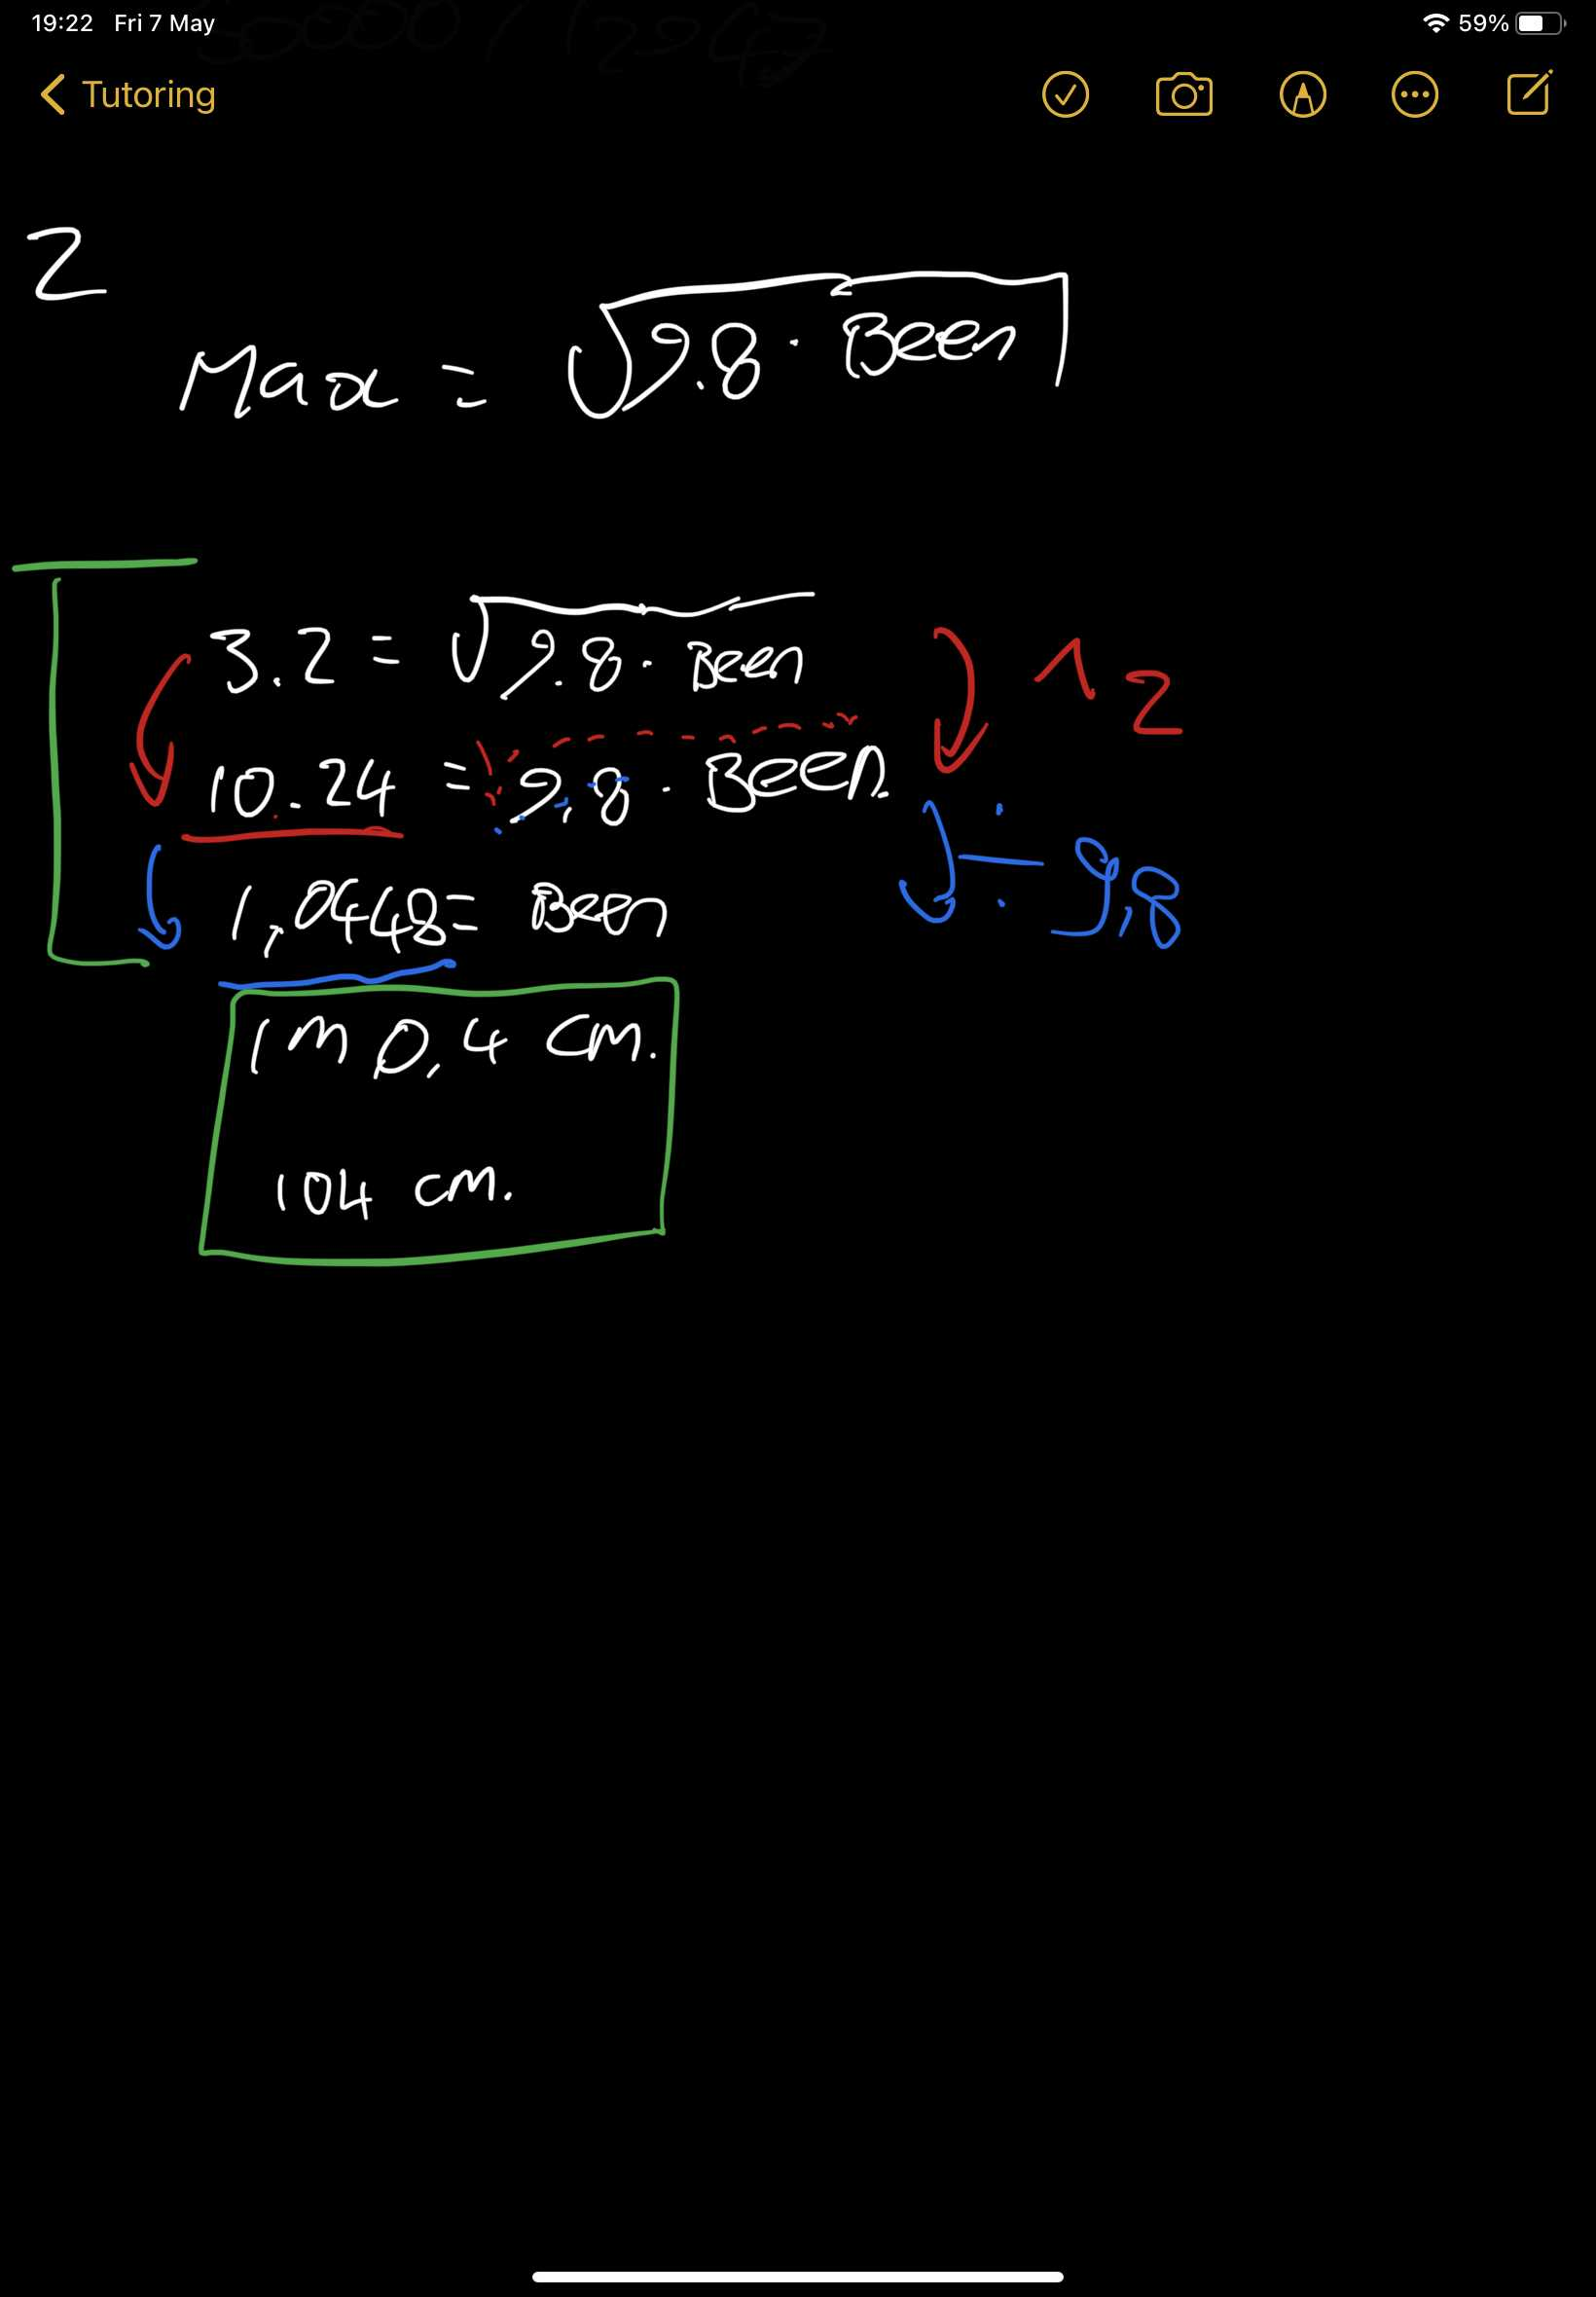 19:22 Fri 7 May 59%
Tutoring
2
Max = √9.8 · Been
3.2 = √9.8 · Been ^2
10.24 = 9,8 · Been
÷ 9,8
1,0448 = Been
1m 0,4 cm.
104 cm.